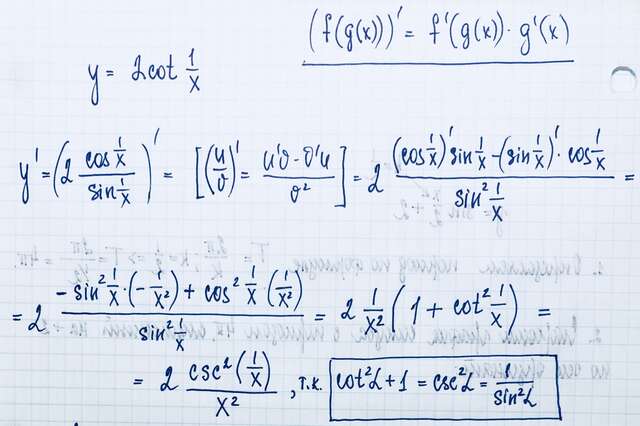 (f(g(x)))' = f'(g(x)) · g'(x)
y = 2cot 1/x
y' = (2 cos 1/x / sin 1/x)' = [(u/v)' = u'v - v'u / v²] = 2 (cos 1/x)' sin 1/x - (sin 1/x)' · cos 1/x / sin² 1/x =
= 2 -sin² 1/x · (-1/x²) + cos² 1/x (1/x²) / sin² 1/x = 2 1/x² (1 + cot² 1/x) =
= 2 csc² (1/x) / x² , т.к. cot²α + 1 = csc²α = 1/sin²α